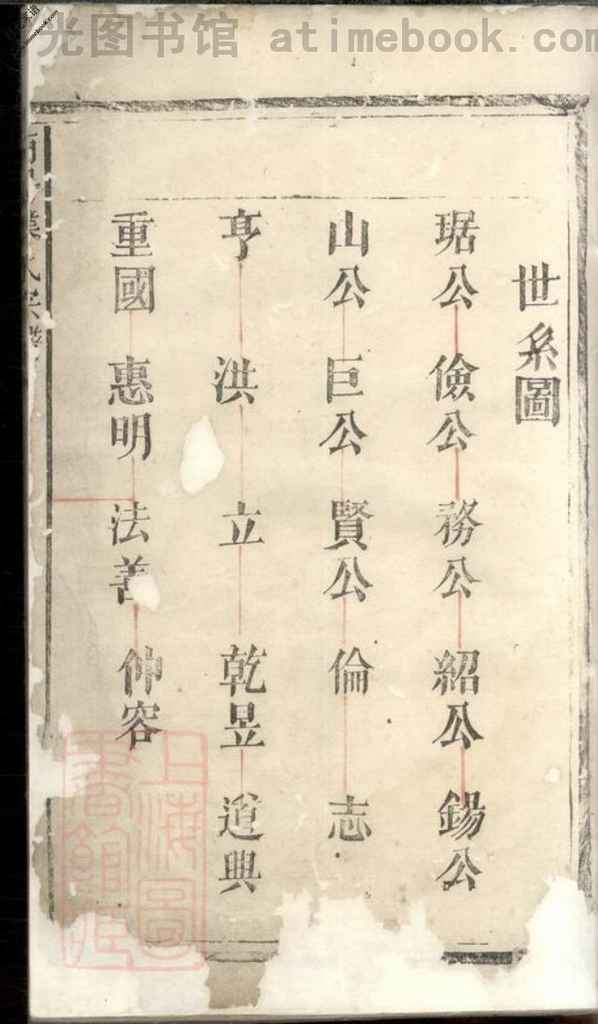 光图书馆 atimebook.com
世系圖
琚公 儉公 務公 紹公 錫公
山公 巨公 賢公 倫 志
亨 洪 立 乾昱 道興
重國 惠明 法善 仲容
上海圖書館藏